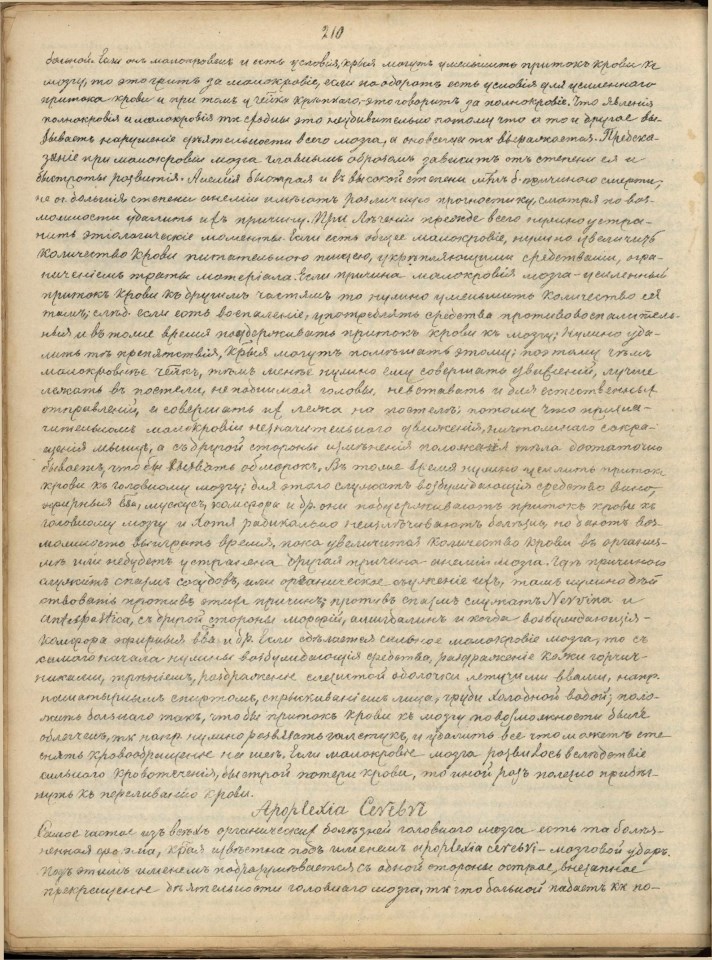 210
больной. Если онъ малокровенъ и есть условія, крыя могутъ уменьшить притокъ крови къ
мозгу, то это гритъ за малокровіе, если на оборотъ есть условія для усиленнаго
притока крови и при томъ у чтка крѣпкаго, это говоритъ за полнокровіе. Что явленія
полнокровія и малокровія тк сходны это неудивительно потому что и то и другое вы-
зываетъ нарушеніе дѣятельности всего мозга, а оно всегда тк выражается. Предска-
заніе при малокровіи мозга главнымъ образомъ зависитъ отъ степени ея и
быстроты развитія. Анемія быстрая и въ высокой степени мжтъ б. причиною смерти;
не оч. большія степени анеміи имѣютъ различную прогностику, смотря по воз-
можности удалить ихъ причину. При лѣченіи прежде всего нужно устра-
нить этіологическіе моменты. Если есть общее малокровіе, нужно увеличить
количество крови питательною пищею, укрѣпляющими средствами, огра-
ниченіемъ траты матеріала. Если причина малокровія мозга – усиленный
притокъ крови къ другимъ частямъ то нужно уменьшить количество ея
тамъ; слѣд. если есть воспаленіе, употреблять средства противовоспалитель-
ныя и въ тоже время поддерживать притокъ крови къ мозгу; нужно уда-
лить тѣ препятствія, крыя могутъ помѣшать этому; поэтому чѣмъ
малокровнѣе чткъ, тѣмъ менѣе нужно ему совершать движеній, лучше
лежать въ постели, не поднимая головы, не вставать и для естественныхъ
отправленій, и совершать ихъ лежа на постелѣ; потому что при зна-
чительномъ малокровіи незначительнаго движенія, ничтожнаго сокра-
щенія мышцъ, а съ другой стороны измѣненія положенія тѣла достаточно
бываетъ, что бы вызвать обморокъ. Въ тоже время нужно усилить притокъ
крови къ головному мозгу; для этого служатъ возбуждающія средства вино,
эфирныя вва, мускусъ, камфора и др. они поддерживаютъ притокъ крови къ
головному мозгу и хотя радикально неизлѣчиваютъ болѣзнь, но даютъ воз-
можность выиграть время, пока увеличится количество крови въ организ-
мѣ или небудетъ устранена другая причина анеміи мозга. Гдѣ причиною
служитъ спазмъ сосудовъ, или органическое съуженіе ихъ, тамъ нужно дѣй
ствовать противъ этихъ причинъ; противъ спазм служатъ Nervina и
antispastica, съ другой стороны морфій, амигдалинъ и когда возбуждающія –
камфора эфирныя вва и др. Если сдѣлается сильное малокровіе мозга, то съ
самаго начала нужны возбуждающія средства, раздраженіе кожи горчич-
никами, треніемъ, раздраженіе слизистой оболочки летучими ввами, напр.
нашатырнымъ спиртомъ, спрыскиваніемъ лица, груди холодной водой; поло-
жить больнаго такъ, что бы притокъ крови къ мозгу по возможности былъ
облегченъ, тк напр нужно развязать галстухъ, и удалить все что можетъ сте
снять кровообращеніе на шеѣ. Если малокровіе мозга развилось вслѣдствіе
сильнаго кровотеченія, быстрой потери крови, то иной разъ полезно прибѣг-
нуть къ переливанію крови.
Apoplexia Cerebri
Самое частое изъ всѣхъ органическихъ болѣзней головнаго мозга есть та болѣз-
ненная форма, ктрая извѣстна подъ именемъ apoplexia cerebri – мозговой ударъ.
Подъ этимъ именемъ подразумѣвается съ одной стороны острое, внезапное
прекращеніе дѣятельности головнаго мозга, тк что больной падаетъ кк по-